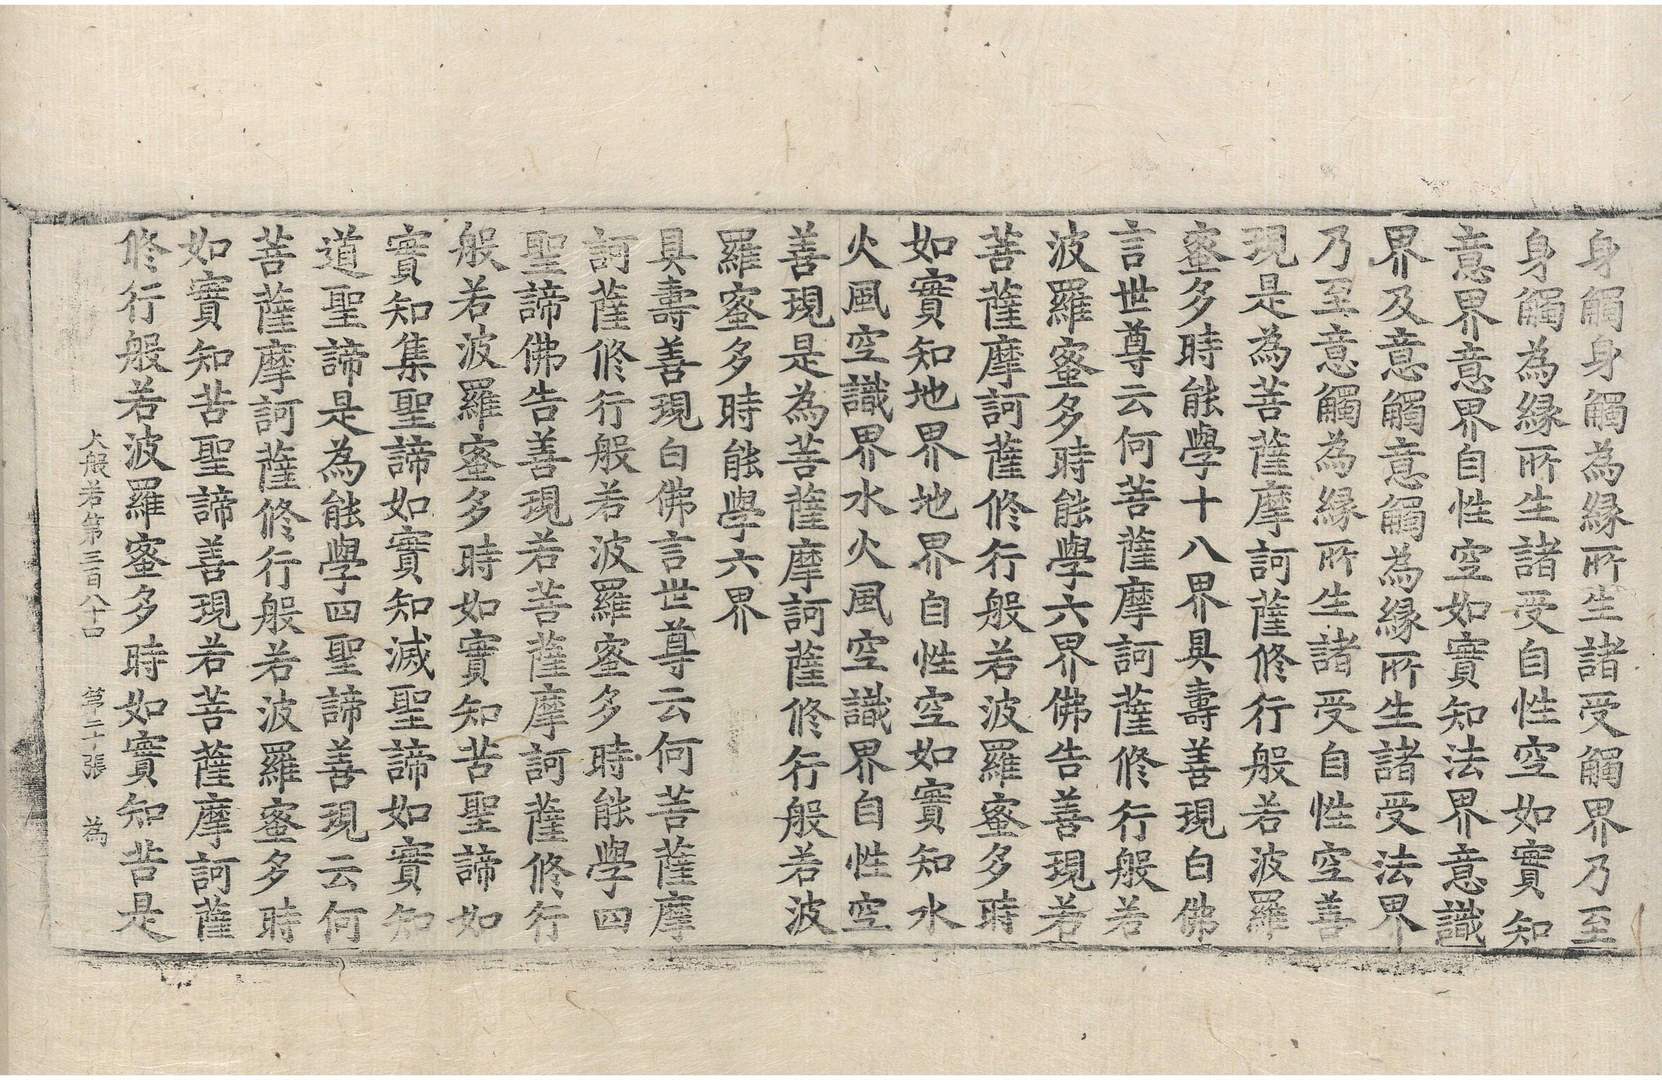 身觸身觸為緣所生諸受觸界乃至
身觸為緣所生諸受自性空如實知
意界意界自性空如實知法界意識
界及意觸意觸為緣所生諸受法界
乃至意觸為緣所生諸受自性空善
現是為菩薩摩訶薩修行般若波羅
蜜多時能學十八界具壽善現白佛
言世尊云何菩薩摩訶薩修行般若
波羅蜜多時能學六界佛告善現若
菩薩摩訶薩修行般若波羅蜜多時
如實知地界地界自性空如實知水
火風空識界水火風空識界自性空
善現是為菩薩摩訶薩修行般若波
羅蜜多時能學六界
具壽善現白佛言世尊云何菩薩摩
訶薩修行般若波羅蜜多時能學四
聖諦佛告善現若菩薩摩訶薩修行
般若波羅蜜多時如實知苦聖諦如
實知集聖諦如實知滅聖諦如實知
道聖諦是為能學四聖諦善現云何
菩薩摩訶薩修行般若波羅蜜多時
如實知苦聖諦善現若菩薩摩訶薩
修行般若波羅蜜多時如實知苦是
大般若第三百八十 第二十張 為